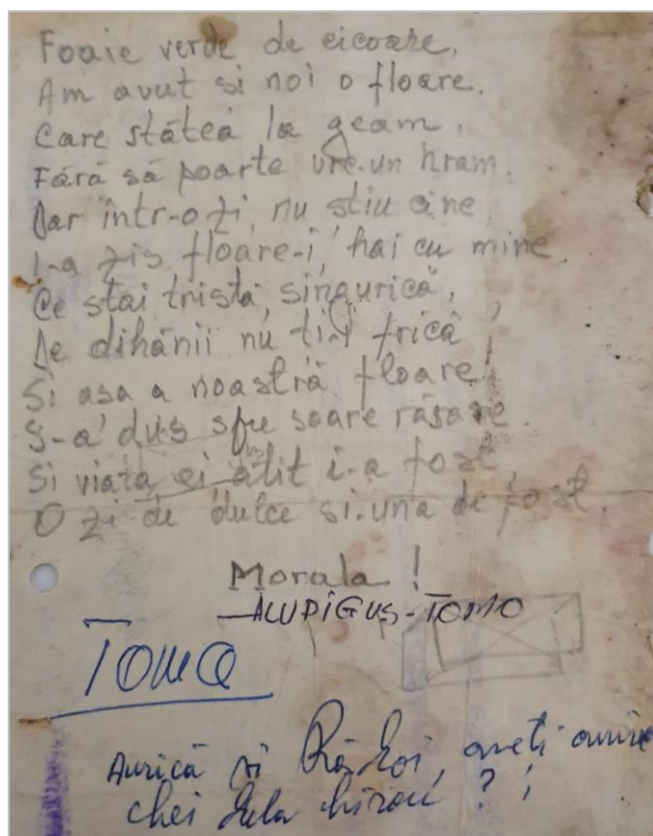 Foaie verde de cicoare,
Am avut si noi o floare.
Care stătea la geam,
Fără să poarte vre-un hram.
Dar într-o zi, nu stiu cine
I-a zis floare-i, hai cu mine
Ce stai tristă, singurică,
De dihănii nu ti-i frică
Si asa a noastră floare,
S-a dus spre soare răsare.
Si viata ei atit i-a fost,
O zi de dulce si una de post.
Morala!
-ALUPIGUS-TOMO
Toma
Aurică si aveti
chei dela birou?!